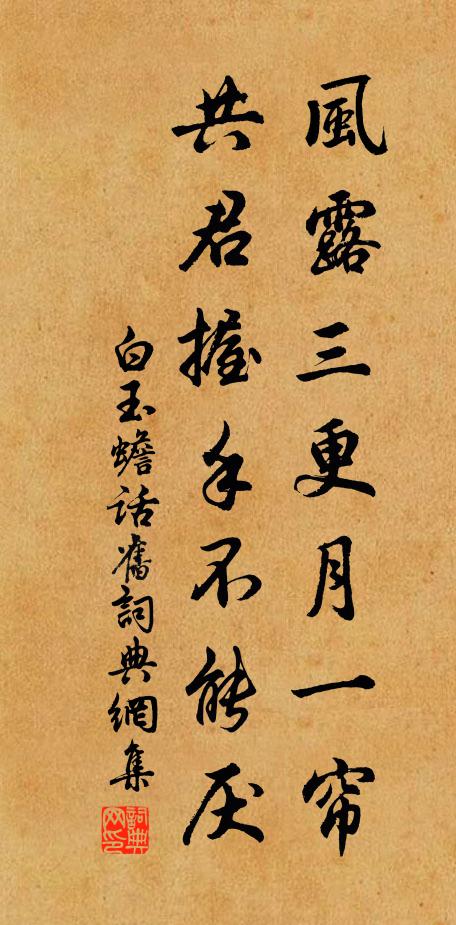 風露三更月一帘
共君握手不能厌
白玉蟾话舊詞典網集
詞典网印